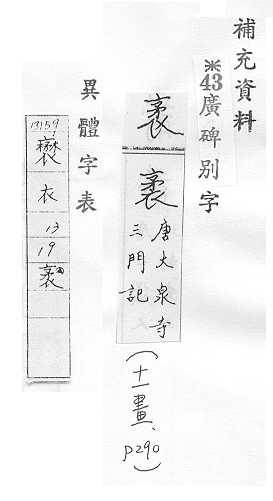 補充資料
※43廣碑別字
袤
袤 唐大泉寺
三門記
(十一畫、
p290)
異體字表
13159
𧞻
衣
13
19
袤